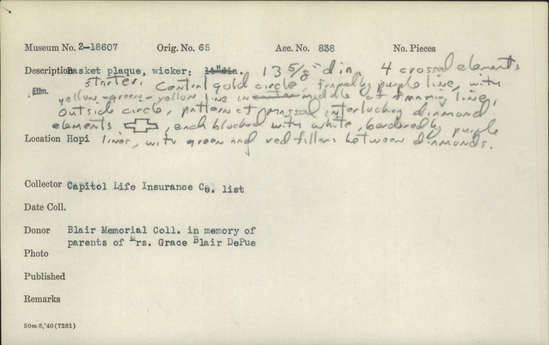 Museum No. 2-18607 Orig. No. 65 Acc. No. 838 No. Pieces
Description Basket plaque, wicker: 15"dia. 13 5/8" dia. 4 crossed elements
starter. Central gold circle, framed by purple line, with
yellow-green-yellow line in middle of framing line,
outside circle, pattern of massed interlocking diamond
elements, each blocked with white, bordered by purple
Location Hopi lines, with green and red fillers between diamonds.
Collector Capitol Life Insurance Co. list
Date Coll.
Donor Blair Memorial Coll. in memory of
parents of Mrs. Grace Blair DePue
Photo
Published
Remarks
50m-8,'40(7281)